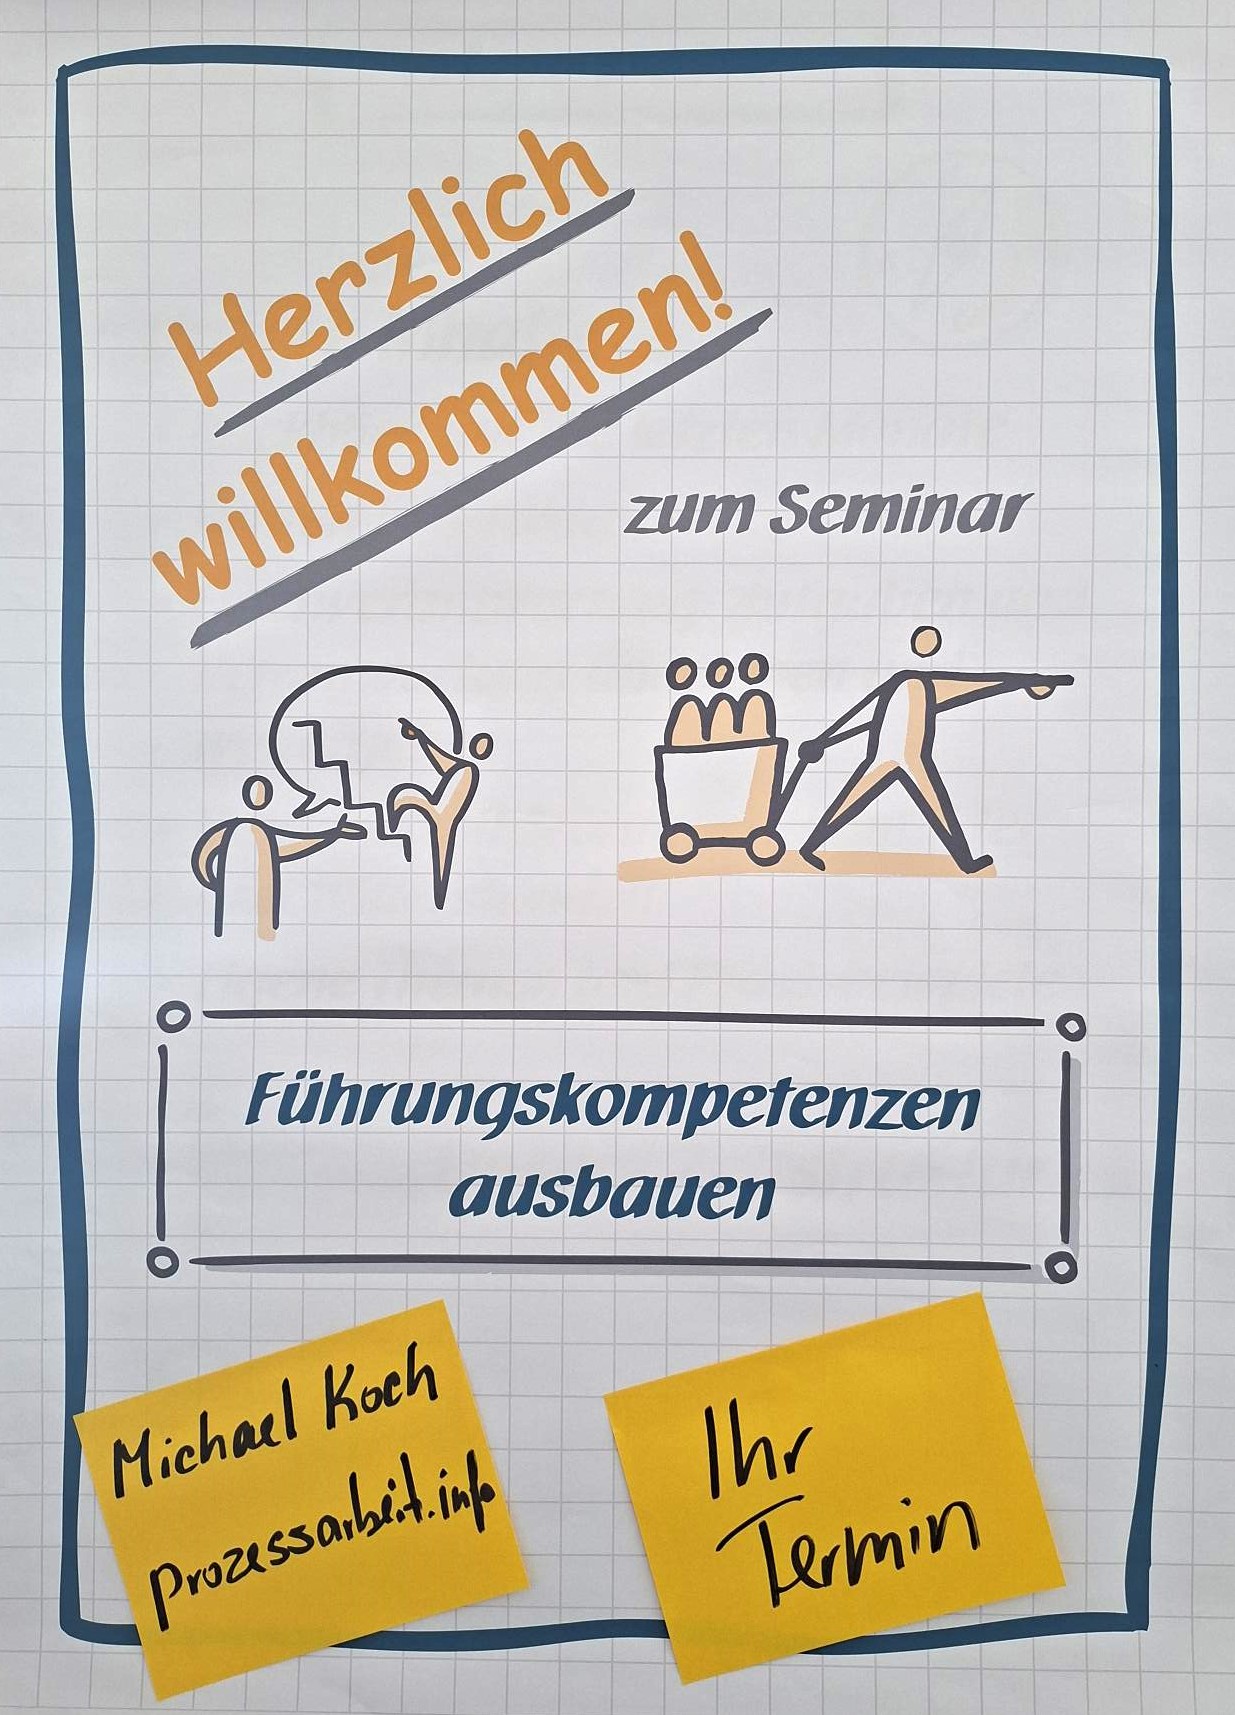 Herzlich
willkommen!
zum Seminar
Führungskompetenzen
ausbauen
Michael Koch
prozessarbeit.info
Ihr
Termin